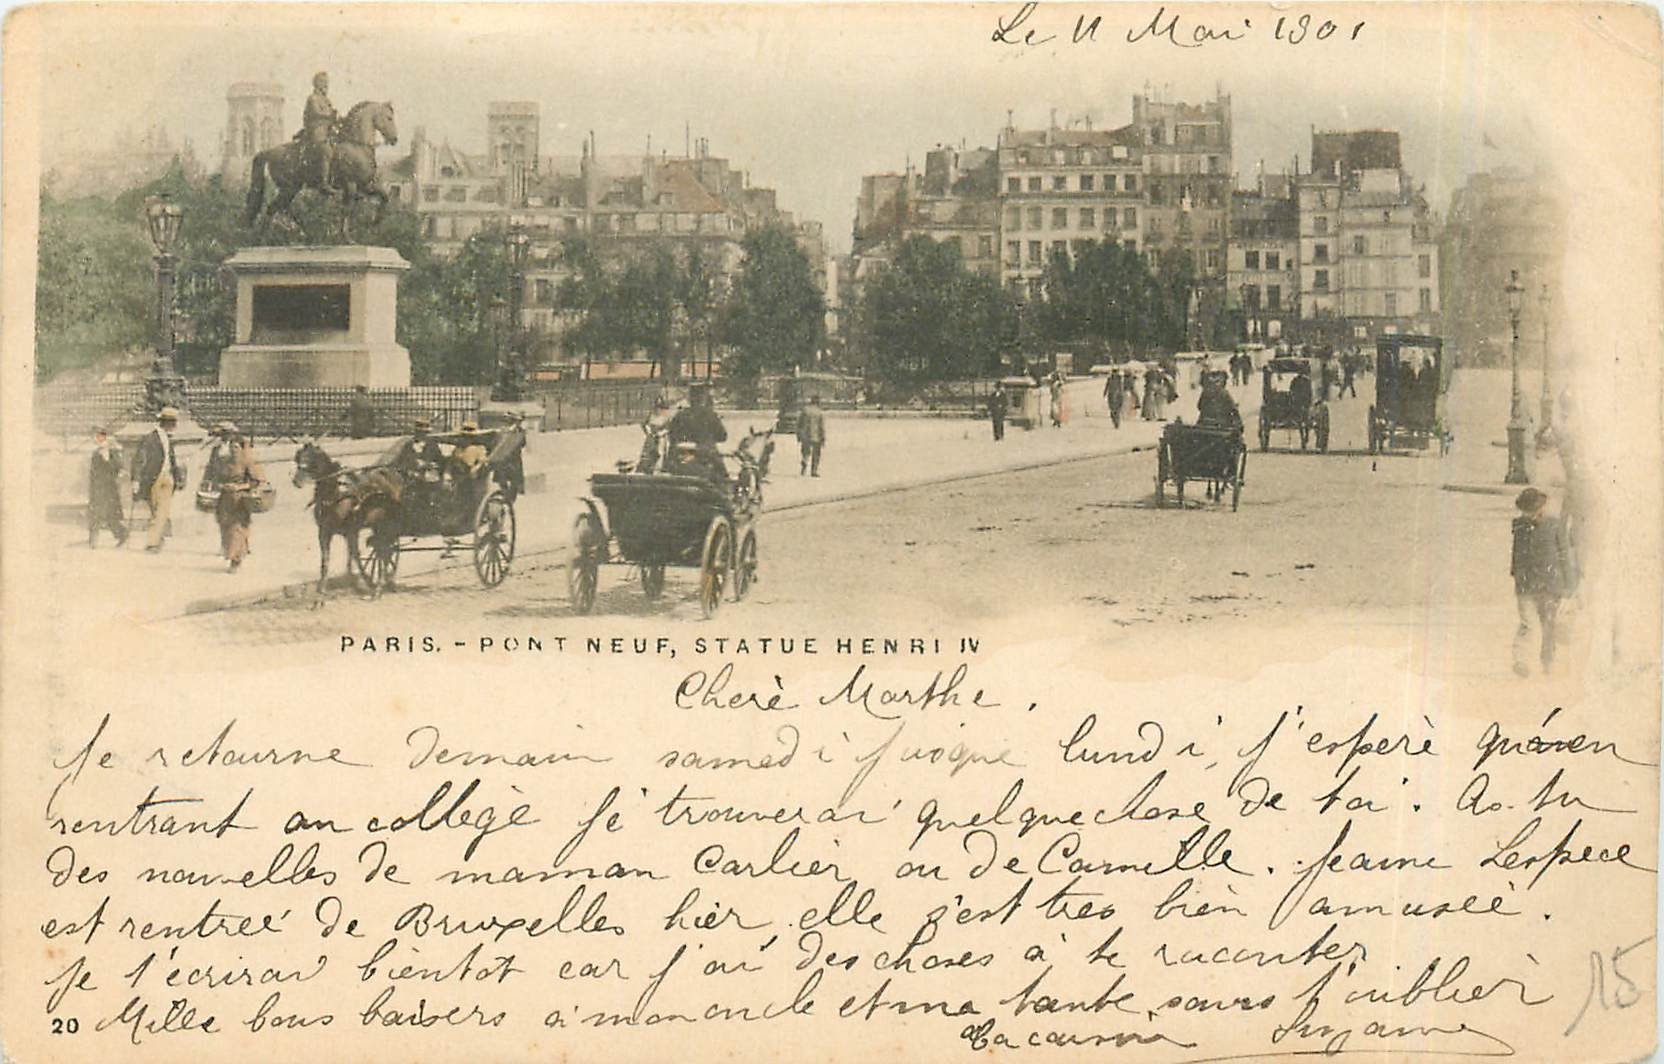 Le 11 Mai 1901
PARIS. - PONT NEUF, STATUE HENRI IV
Cherè Marthe.
Je retourne demain samedi jusque lundi, j'esperè qu'en
rentrant au collegè je trouverai quelque chose de toi. As-tu
des nouvelles de maman Carlier ou de Camille. Jeanne Lespece
est rentreé de Bruxelles hier, elle s'est tres bien amuseè.
Je t'écrirai bientot car j'ai des choses à te raconter
20 Mille bons baisers a mon oncle et ma tante sans t'oublier
Ta cousine Suzanne
15